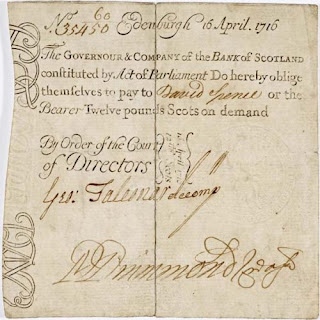 60
No. 35450 Edenburgh 16 April. 1716
THE GOVERNOUR & COMPANY of the BANK of SCOTLAND
constituted by Act of Parliament Do hereby oblige
themselves to pay to David Spence or the
Bearer Twelve pounds Scots on demand
By Order of the Court
of DIRECTORS
Drummond